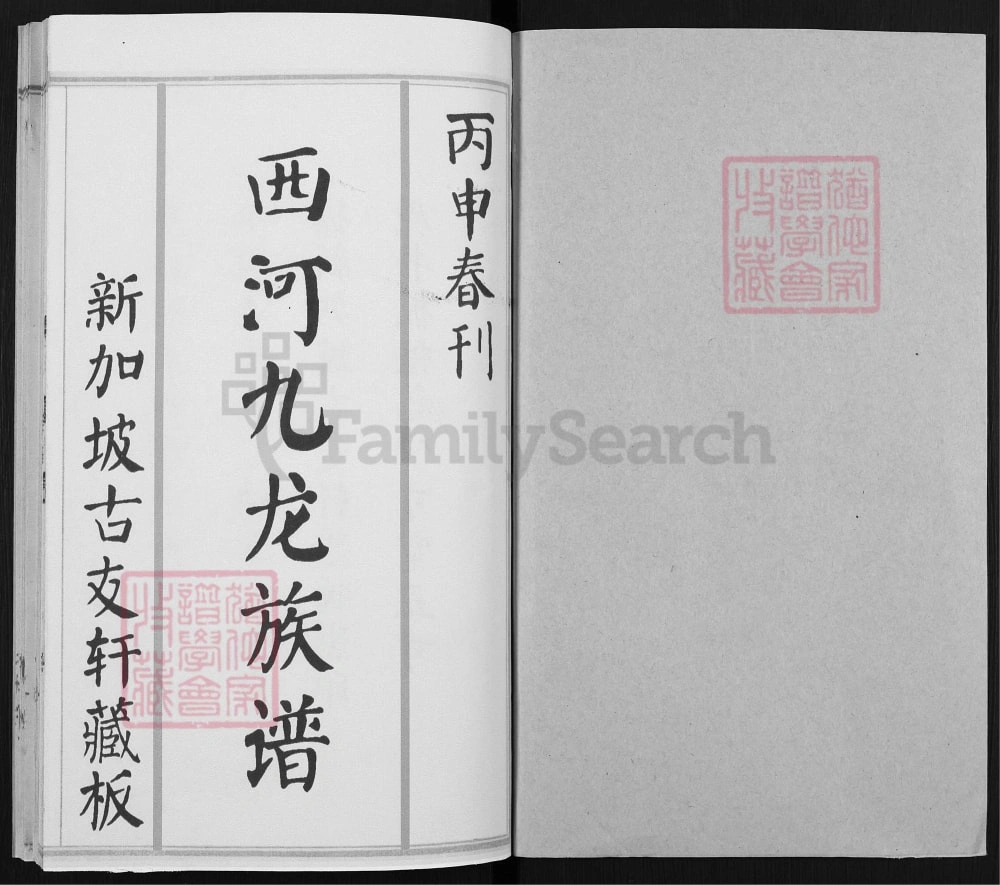 丙申春刊
西河九龙族谱
新加坡古友轩藏板
猶他家
譜學會
收藏
FamilySearch
猶他家
譜學會
收藏